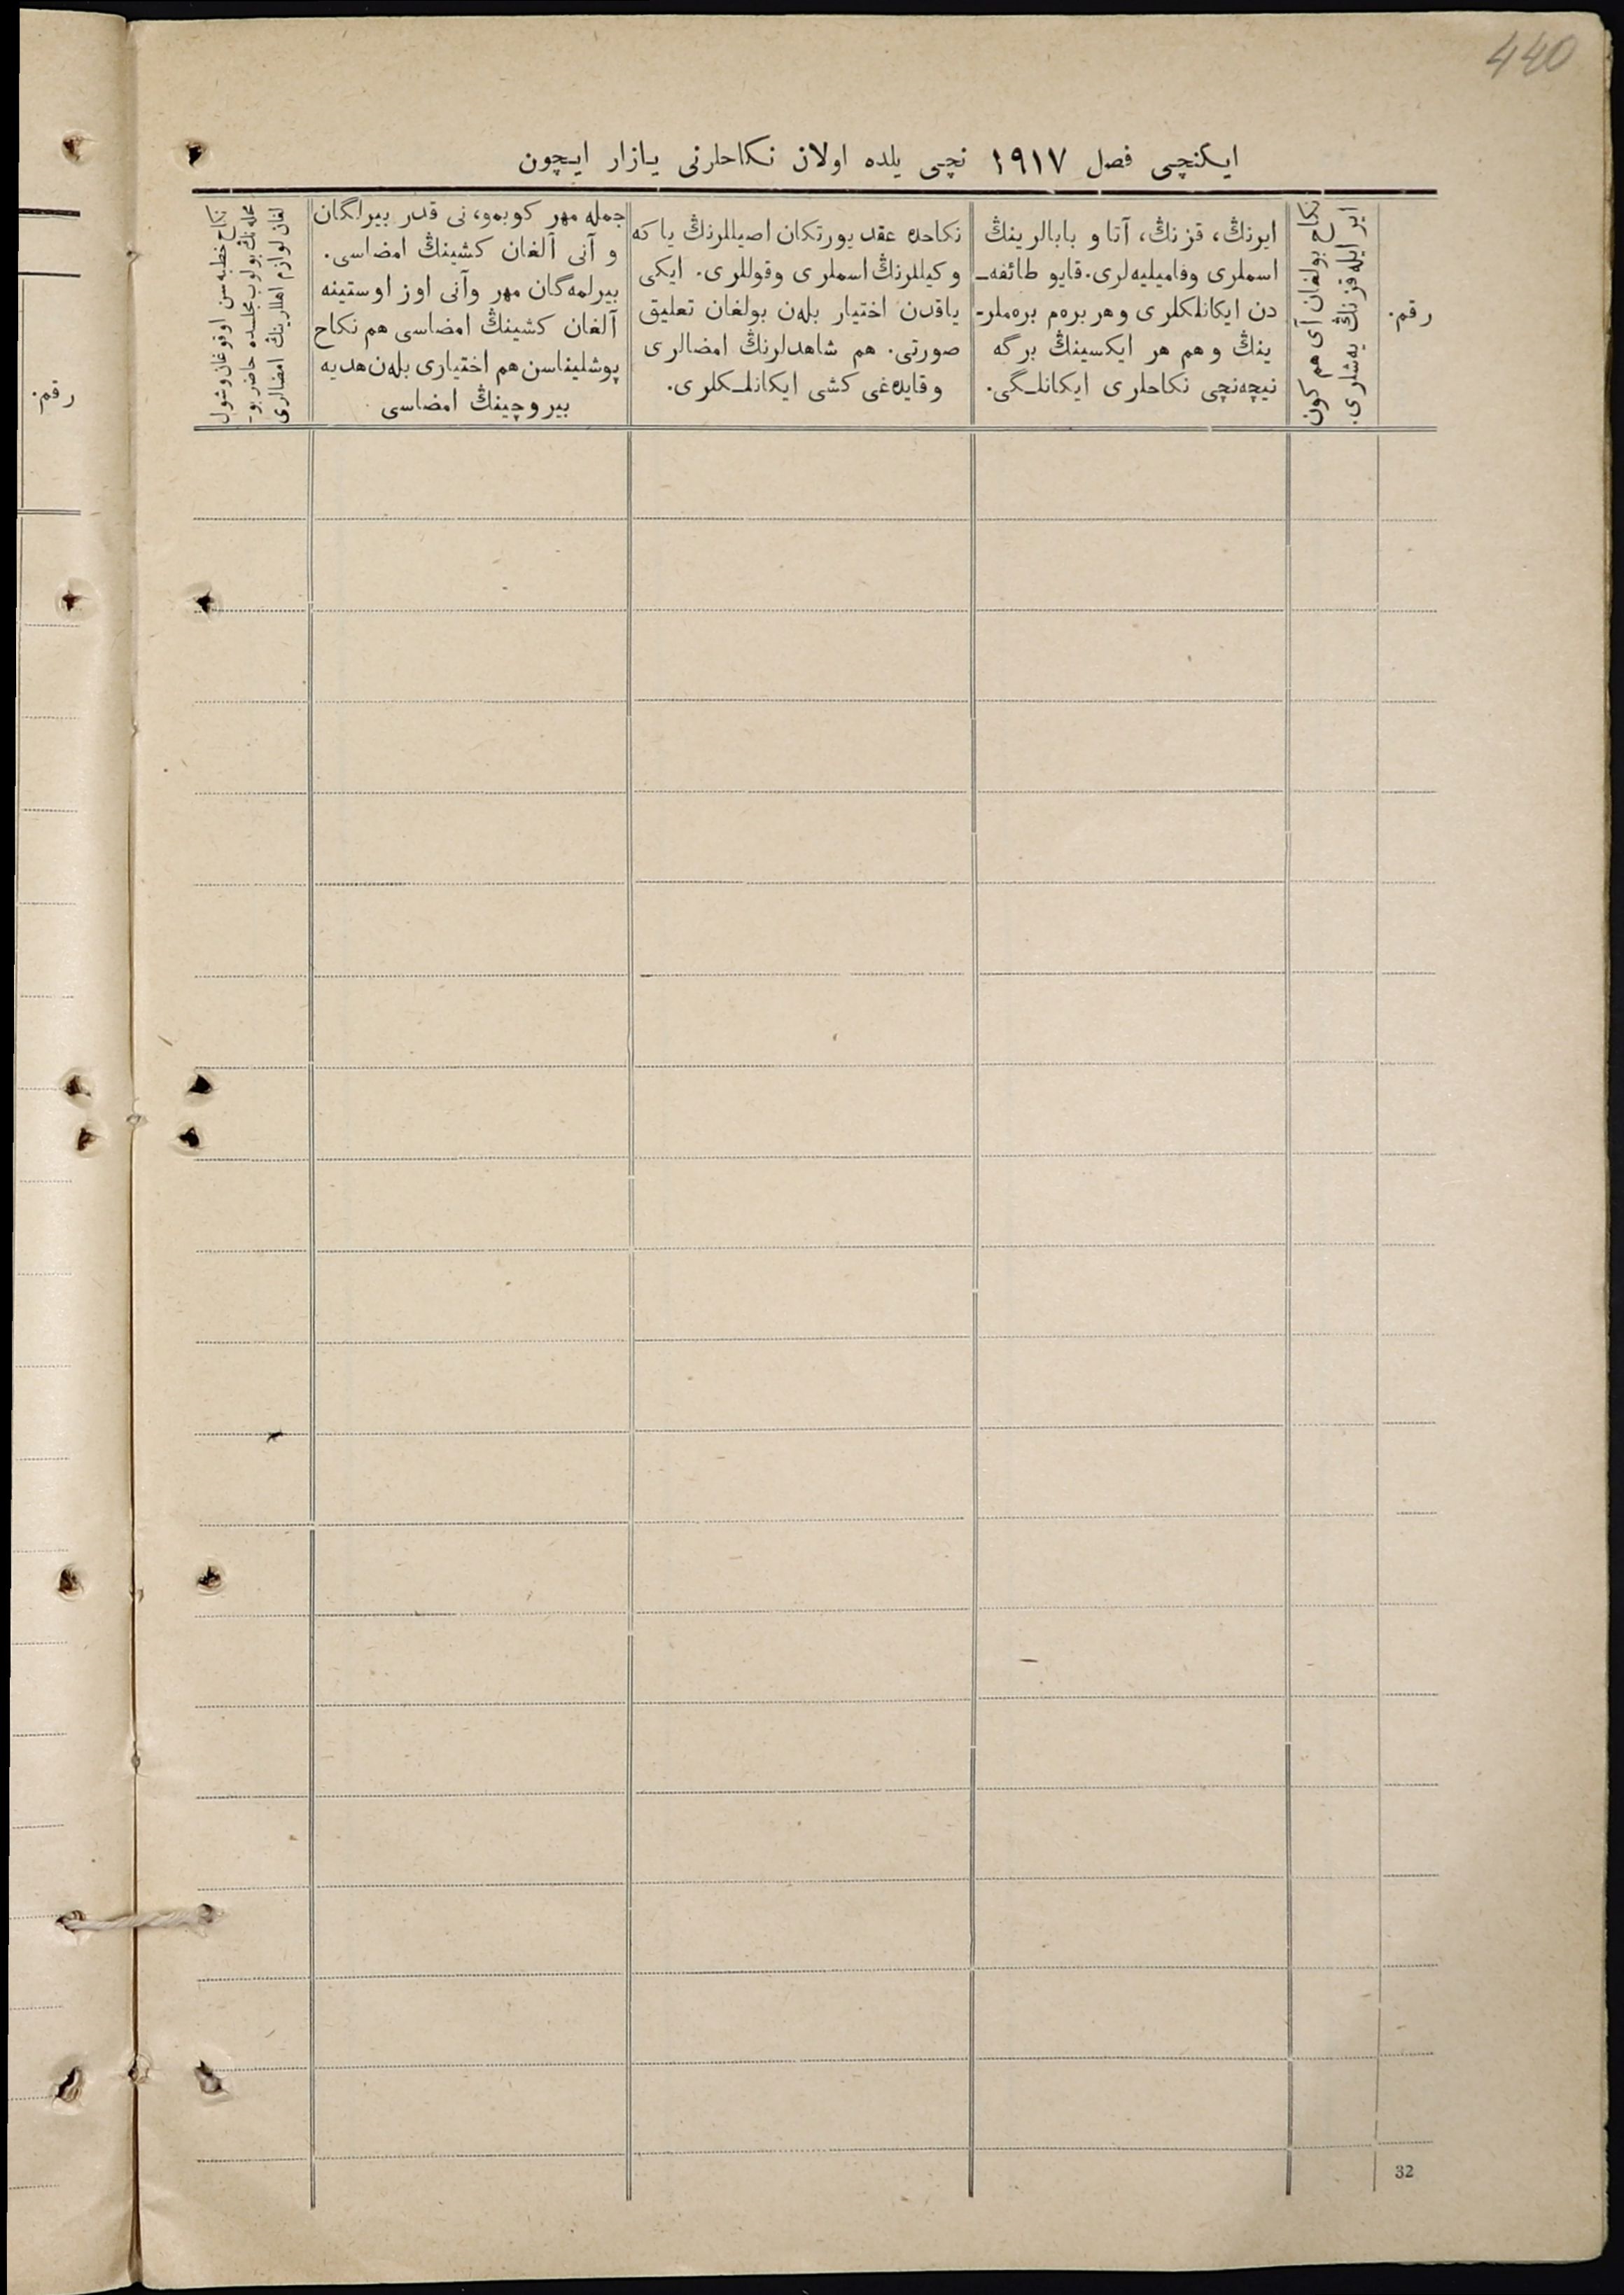 440
ایکنچی فصل ١٩١٧ نچی یلده اولان نکاحلرنی یازار ایچون
رقم.
نکاح بولغان آی هم کون
ایر ایله قزنڭ یه‌شلری.
ایرنڭ، قزنڭ، آتا و بابالرینڭ
اسملری وفامیلیه‌لری. قایو طائفه‌ـ
دن ایکانلکلری وهر بره‌م بره‌ملرـ
ینڭ وهم هر ایکسینڭ برگه
نیچه‌نچی نکاحلری ایکانلـگی.
نکاحده عقد یورتکان اصیللرنڭ یا که
وکیللرنڭ اسملری وقوللری. ایکی
یاقدن اختیار بله‌ن بولغان تعلیق
صورتی. هم شاهدلرنڭ امضالری
وقایده‌غی کشی ایکانلـکلری.
جمله مهر کوبمو، نی قدر بیرلگان
و آنی آلغان کشینڭ امضاسی.
بیرلمه‌گان مهر وآنی اوز اوستینه
آلغان کشینڭ امضاسی هم نکاح
پوشلیناسن هم اختیاری بله‌ن هدیه
بیروچینڭ امضاسی
نکاح خطبه‌سن اوقوغان وشول
محله‌نڭ بولوب مجلسده حاضر بوـ
لغان لوازم اهللارینڭ امضالری
رقم.
32